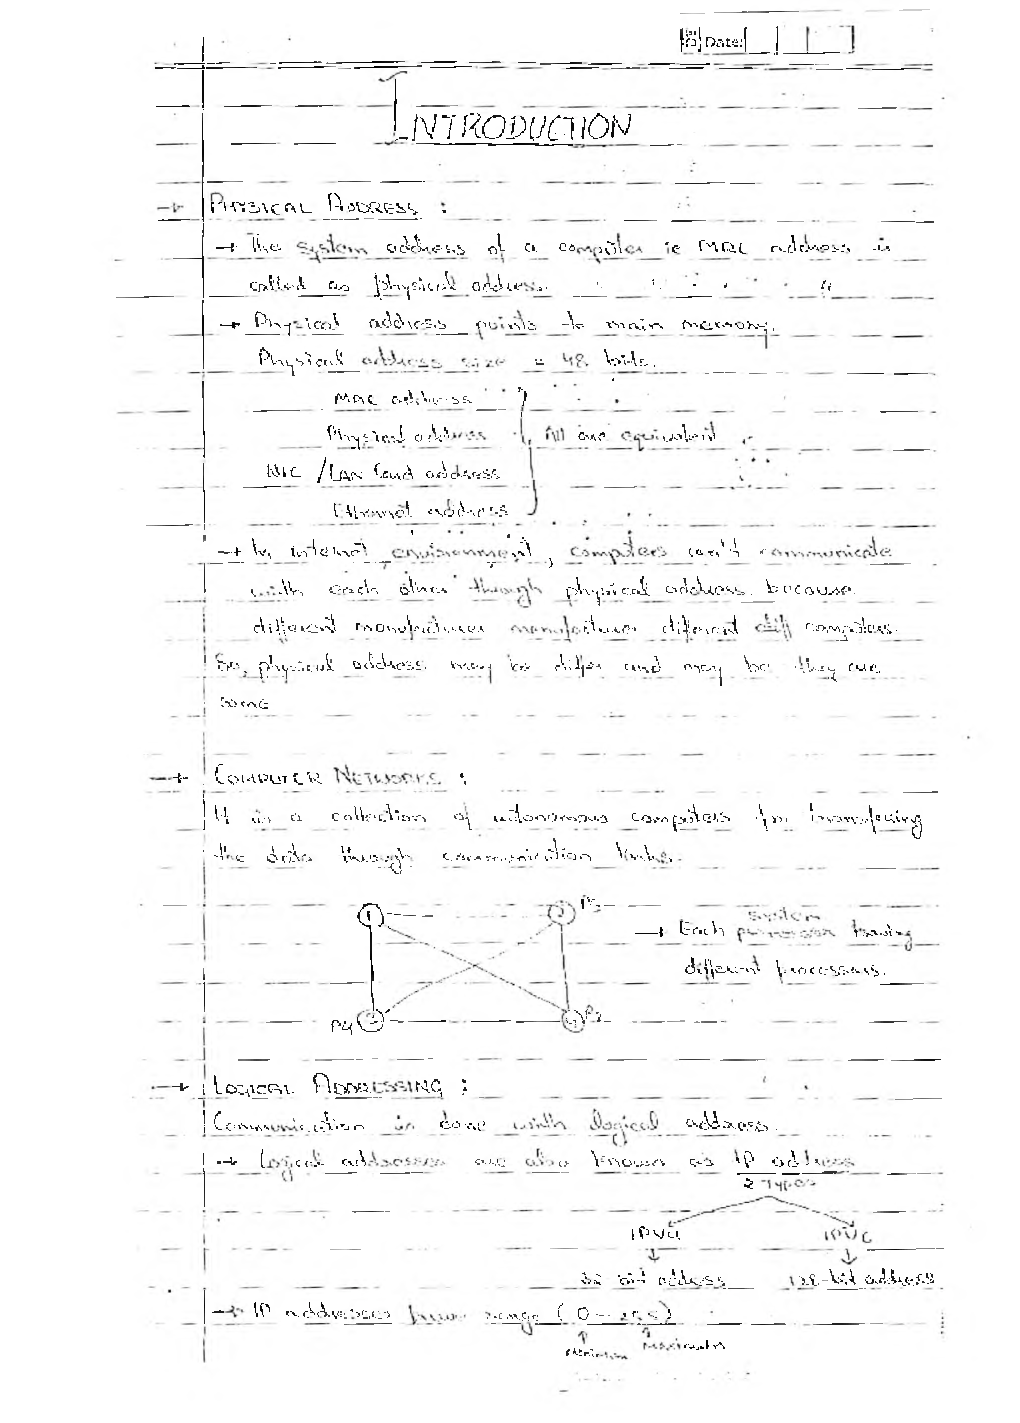 Date:
INTRODUCTION
→ PHYSICAL ADDRESS :
→ The system address of a computer ie MAC address is
called as physical address.
→ Physical address points to main memory.
Physical address size = 48 bits.
MAC address
Physical address } All are equivalent
NIC / LAN Card address
Ethernet address
→ In internet environment, computers can't communicate
with each other through physical address because
different manufacturer manufactures different diff computers.
So, physical address may be differ and may be they are
same
→ COMPUTER NETWORKS :
It is a collection of autonomous computers for transfering
the data through communication links.
1 P3
→ Each system having
different processors.
P4 P2
→ LOGICAL ADDRESSING :
Communication is done with logical address.
→ Logical addresses are also known as IP address
2 Types
IPV4 IPV6
↓ ↓
32 bit address 128-bit address
→ IP addresses have range (0 - 255)
↑ ↑
Minimum Maximum